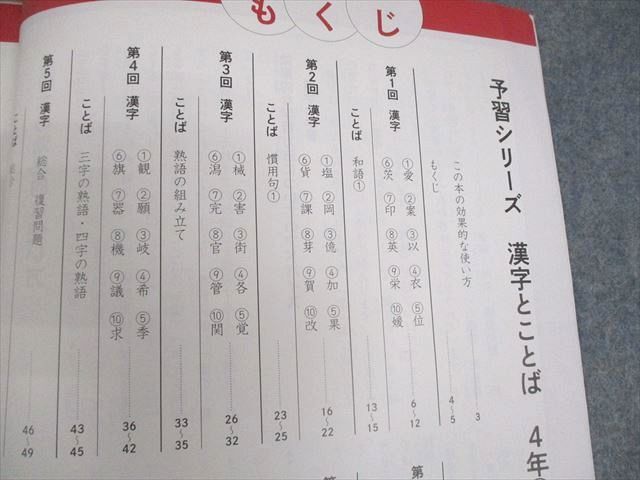 もくじ
予習シリーズ 漢字とことば 4年
この本の効果的な使い方 3
もくじ 4〜5
第1回 漢字 ①愛 ②案 ③以 ④衣 ⑤位
⑥茨 ⑦印 ⑧英 ⑨栄 ⑩媛 6〜12
ことば 和語① 13〜15
第2回 漢字 ①塩 ②岡 ③億 ④加 ⑤果
⑥貨 ⑦課 ⑧芽 ⑨賀 ⑩改 16〜22
ことば 慣用句① 23〜25
第3回 漢字 ①械 ②害 ③街 ④各 ⑤覚
⑥潟 ⑦完 ⑧官 ⑨管 ⑩関 26〜32
ことば 熟語の組み立て 33〜35
第4回 漢字 ①観 ②願 ③岐 ④希 ⑤季
⑥旗 ⑦器 ⑧機 ⑨議 ⑩求 36〜42
ことば 三字の熟語・四字の熟語 43〜45
第5回 漢字 総合 復習問題 46〜49
ことば
第
第